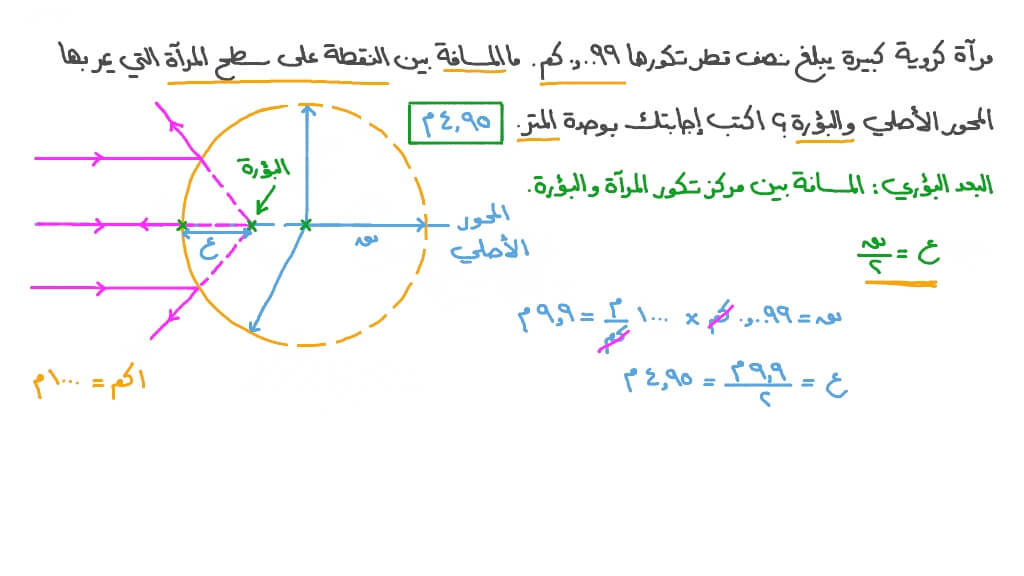 مرآة كروية كبيرة يبلغ نصف قطر تكورها ٠٫٠٠٩٩ كم. ما المسافة بين النقطة على سطح المرآة التي يمر بها
المحور الأصلي والبؤرة؟ اكتب إجابتك بوحدة المتر. ٤٫٩٥ م
البعد البؤري: المسافة بين مركز تكور المرآة والبؤرة.
البؤرة
المحور
الأصلي
نھ
ع
ع = نھ / ٢
نھ = ٠٫٠٠٩٩ كم × ١٠٠٠ م / كم = ٩٫٩ م
ع = ٩٫٩ م / ٢ = ٤٫٩٥ م
١ كم = ١٠٠٠ م